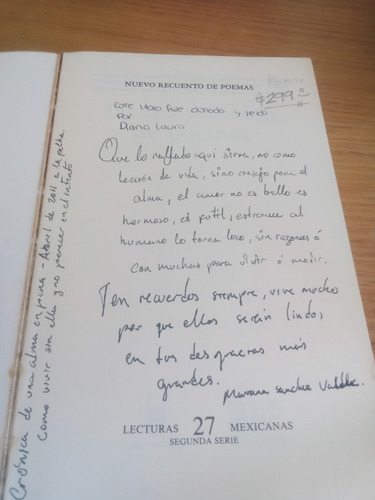 NUEVO RECUENTO DE POEMAS
Poesía
$299
Este libro fue donado y leído
por
Diana Laura
Que lo rallado aqui sirva, no como
lección de vida, sino consejo para el
alma, el amor no es bello es
hermoso, es futil, estremece al
humano lo torna loco, sin razones ó
con muchas para vivir ó morir.
Ten recuerdos siempre, vive mucho
por que ellos serán lindos,
en tus desgracias más
grandes.
Mariana Sanchez
LECTURAS 27 MEXICANAS
SEGUNDA SERIE
Crónica de una alma en pena - Abril de 2011 a la fecha.
Como vivir sin ella y no perecer en el intento